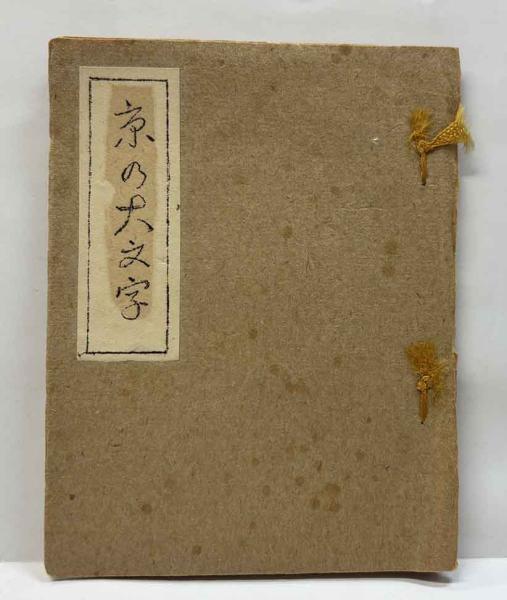 京の大文字